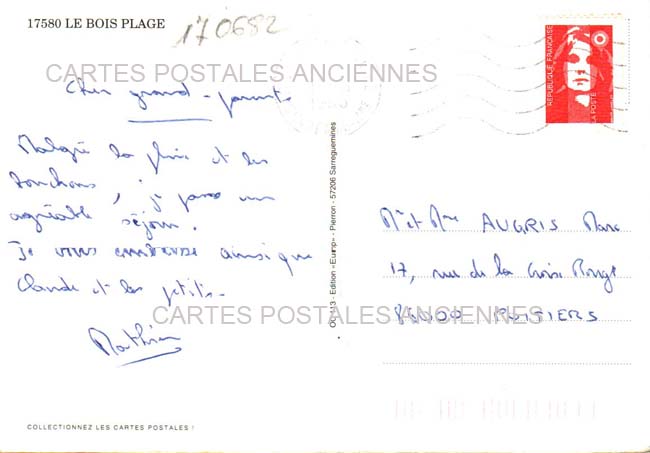 17580 LE BOIS PLAGE
170682
CARTES POSTALES ANCIENNES
Cher grand-parents
Malgré la pluie et les
, je passe un
agréable séjour.
Je vous embrasse ainsi que
Claude et les petits.
Mathieu
COLLECTIONNEZ LES CARTES POSTALES !
Edition «Europ» - Pierron - 57206 Sarreguemines
REPUBLIQUE FRANÇAISE
LA POSTE
Mr et Mme AUGRIS Marc
17, rue de la Croix Rouge
86000 POITIERS
CARTES POSTALES ANCIENNES